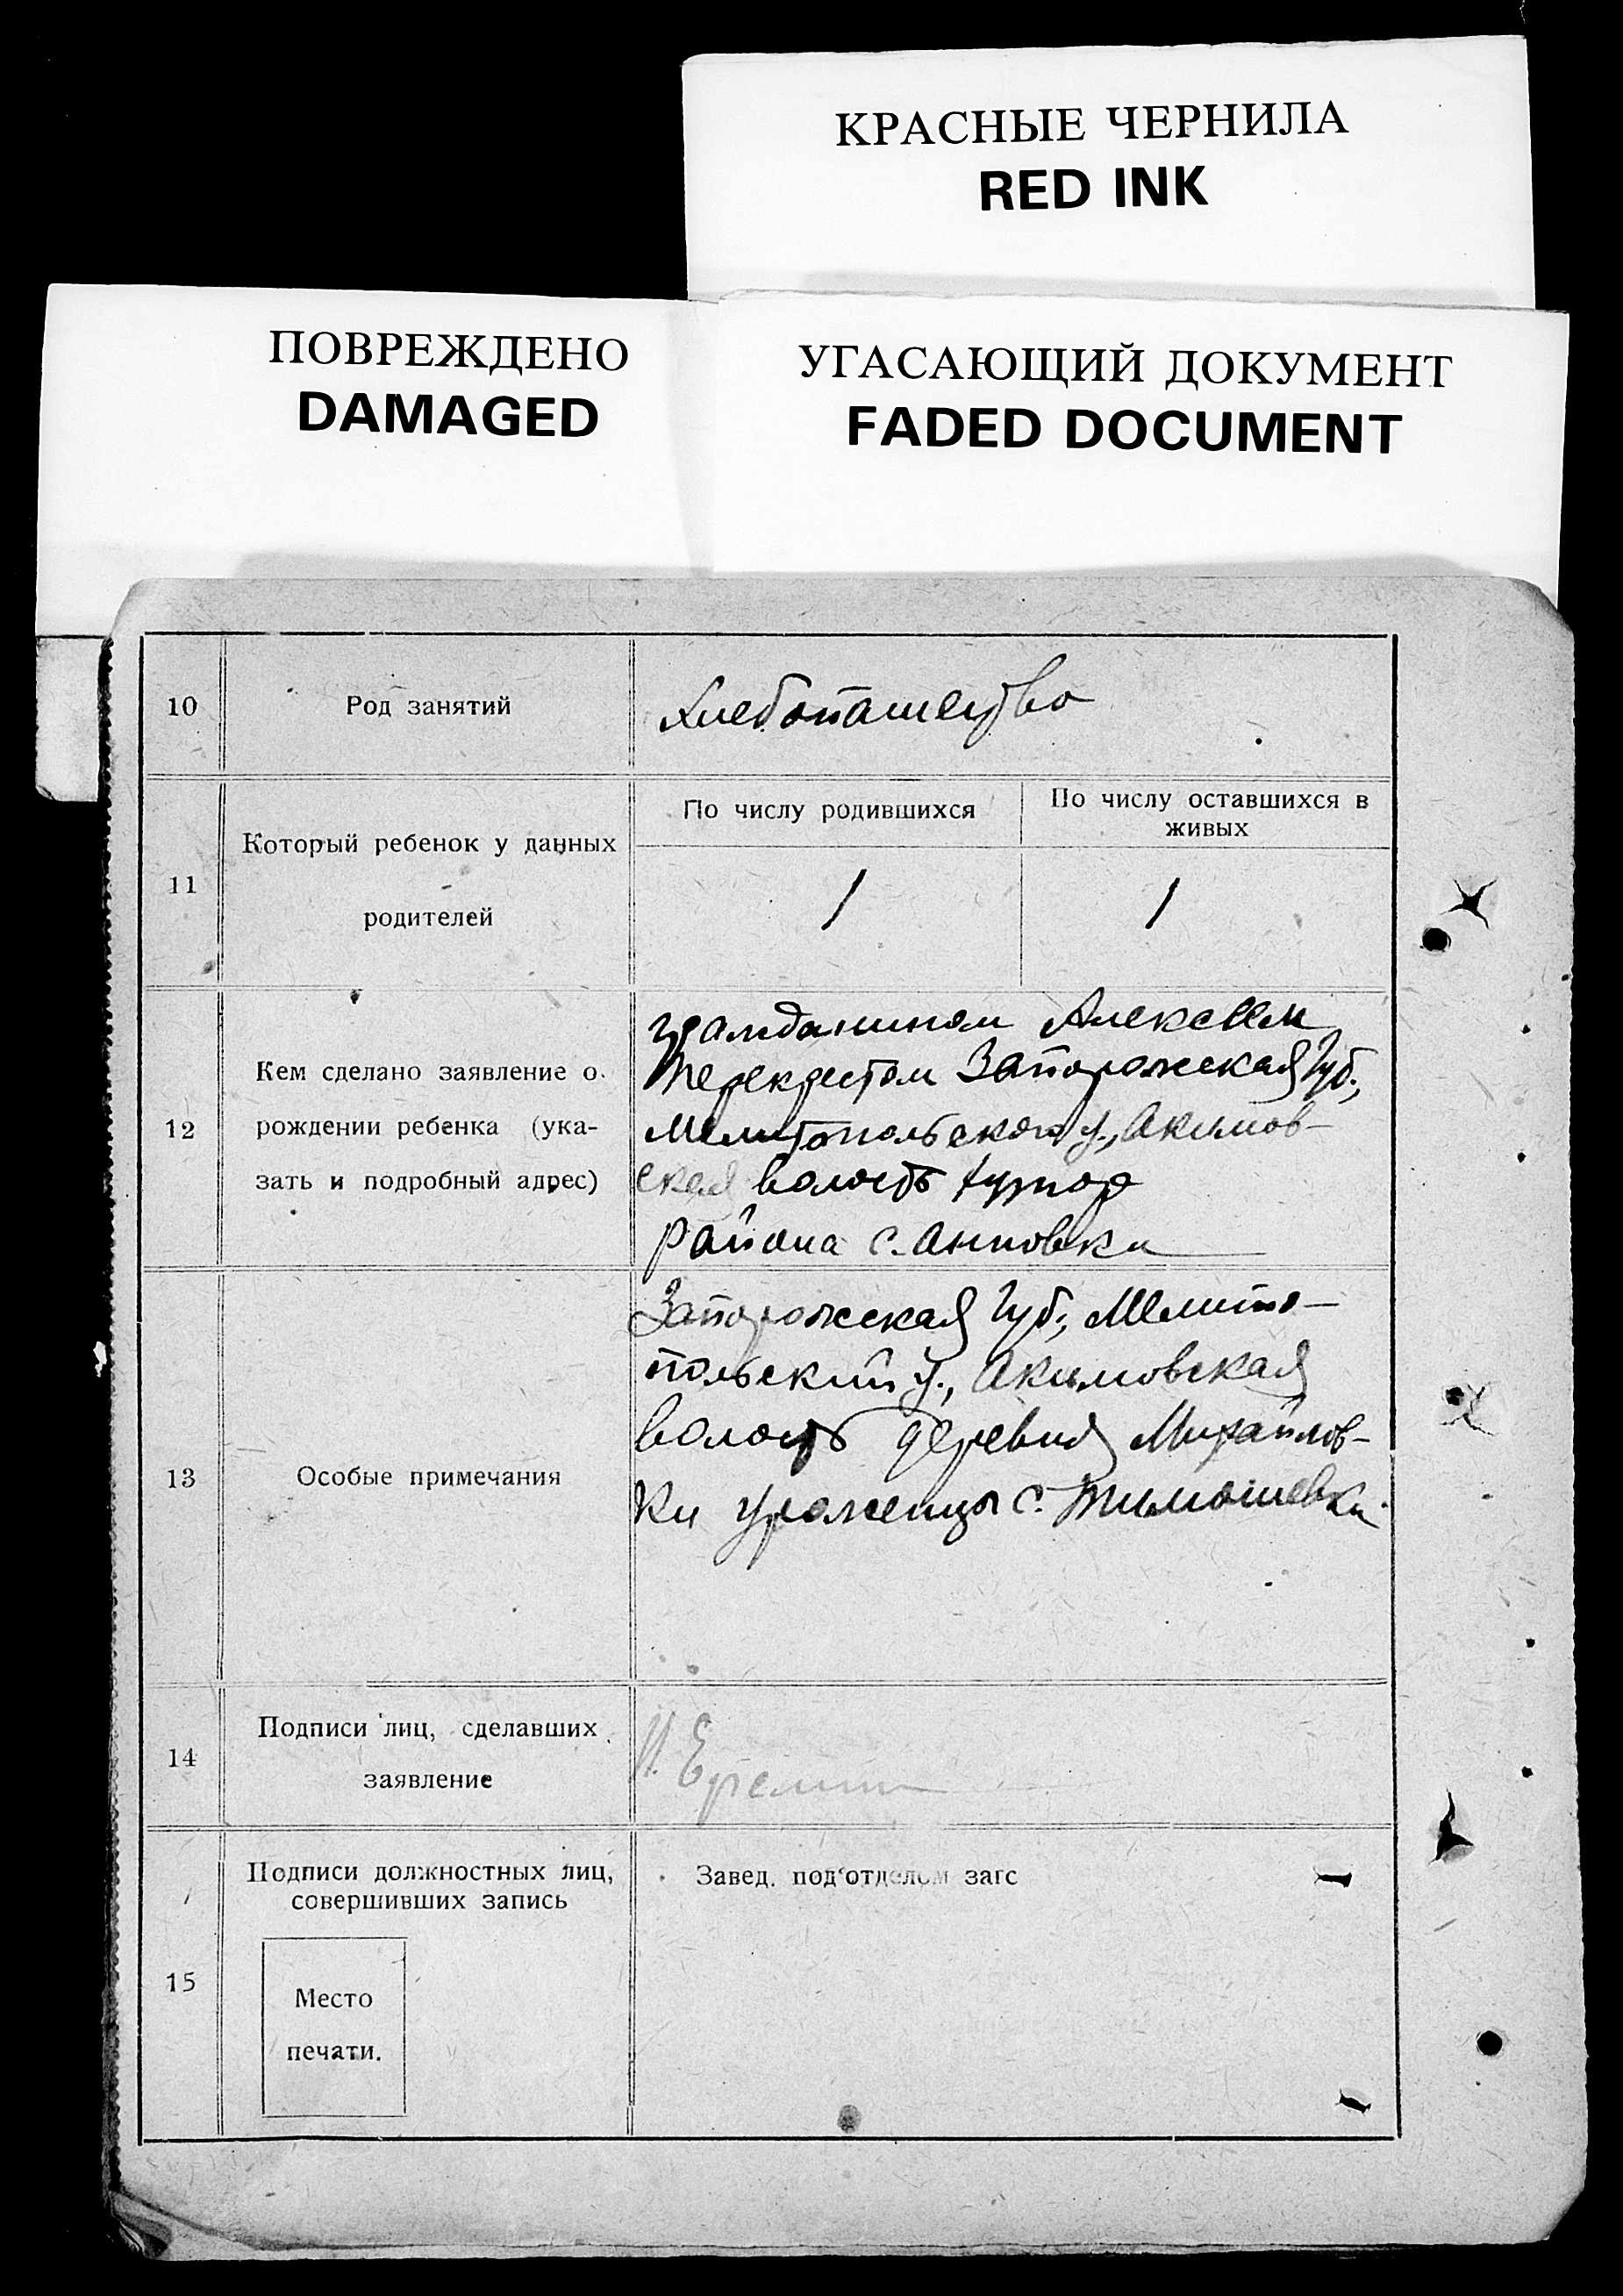 КРАСНЫЕ ЧЕРНИЛА
RED INK
ПОВРЕЖДЕНО
DAMAGED
УГАСАЮЩИЙ ДОКУМЕНТ
FADED DOCUMENT
10 Род занятий Хлебопашество
11 Который ребенок у данных
родителей
По числу родившихся
По числу оставшихся в
живых
1 1
12 Кем сделано заявление о
рождении ребенка (ука-
зать и подробный адрес)
гражданином Алексеем
Перекрестом Запорожская Губ.,
Мелитопольского у., Акимов-
ская волость хутор
Района с. Анновки
13 Особые примечания
Запорожская Губ., Мелито-
польский у., Акимовская
волость деревня Михайлов-
ки уроженцы с. Тимошевки
14 Подписи лиц, сделавших
заявление
15 Подписи должностных лиц,
совершивших запись
Завед. под'отделом загс
Место
печати.